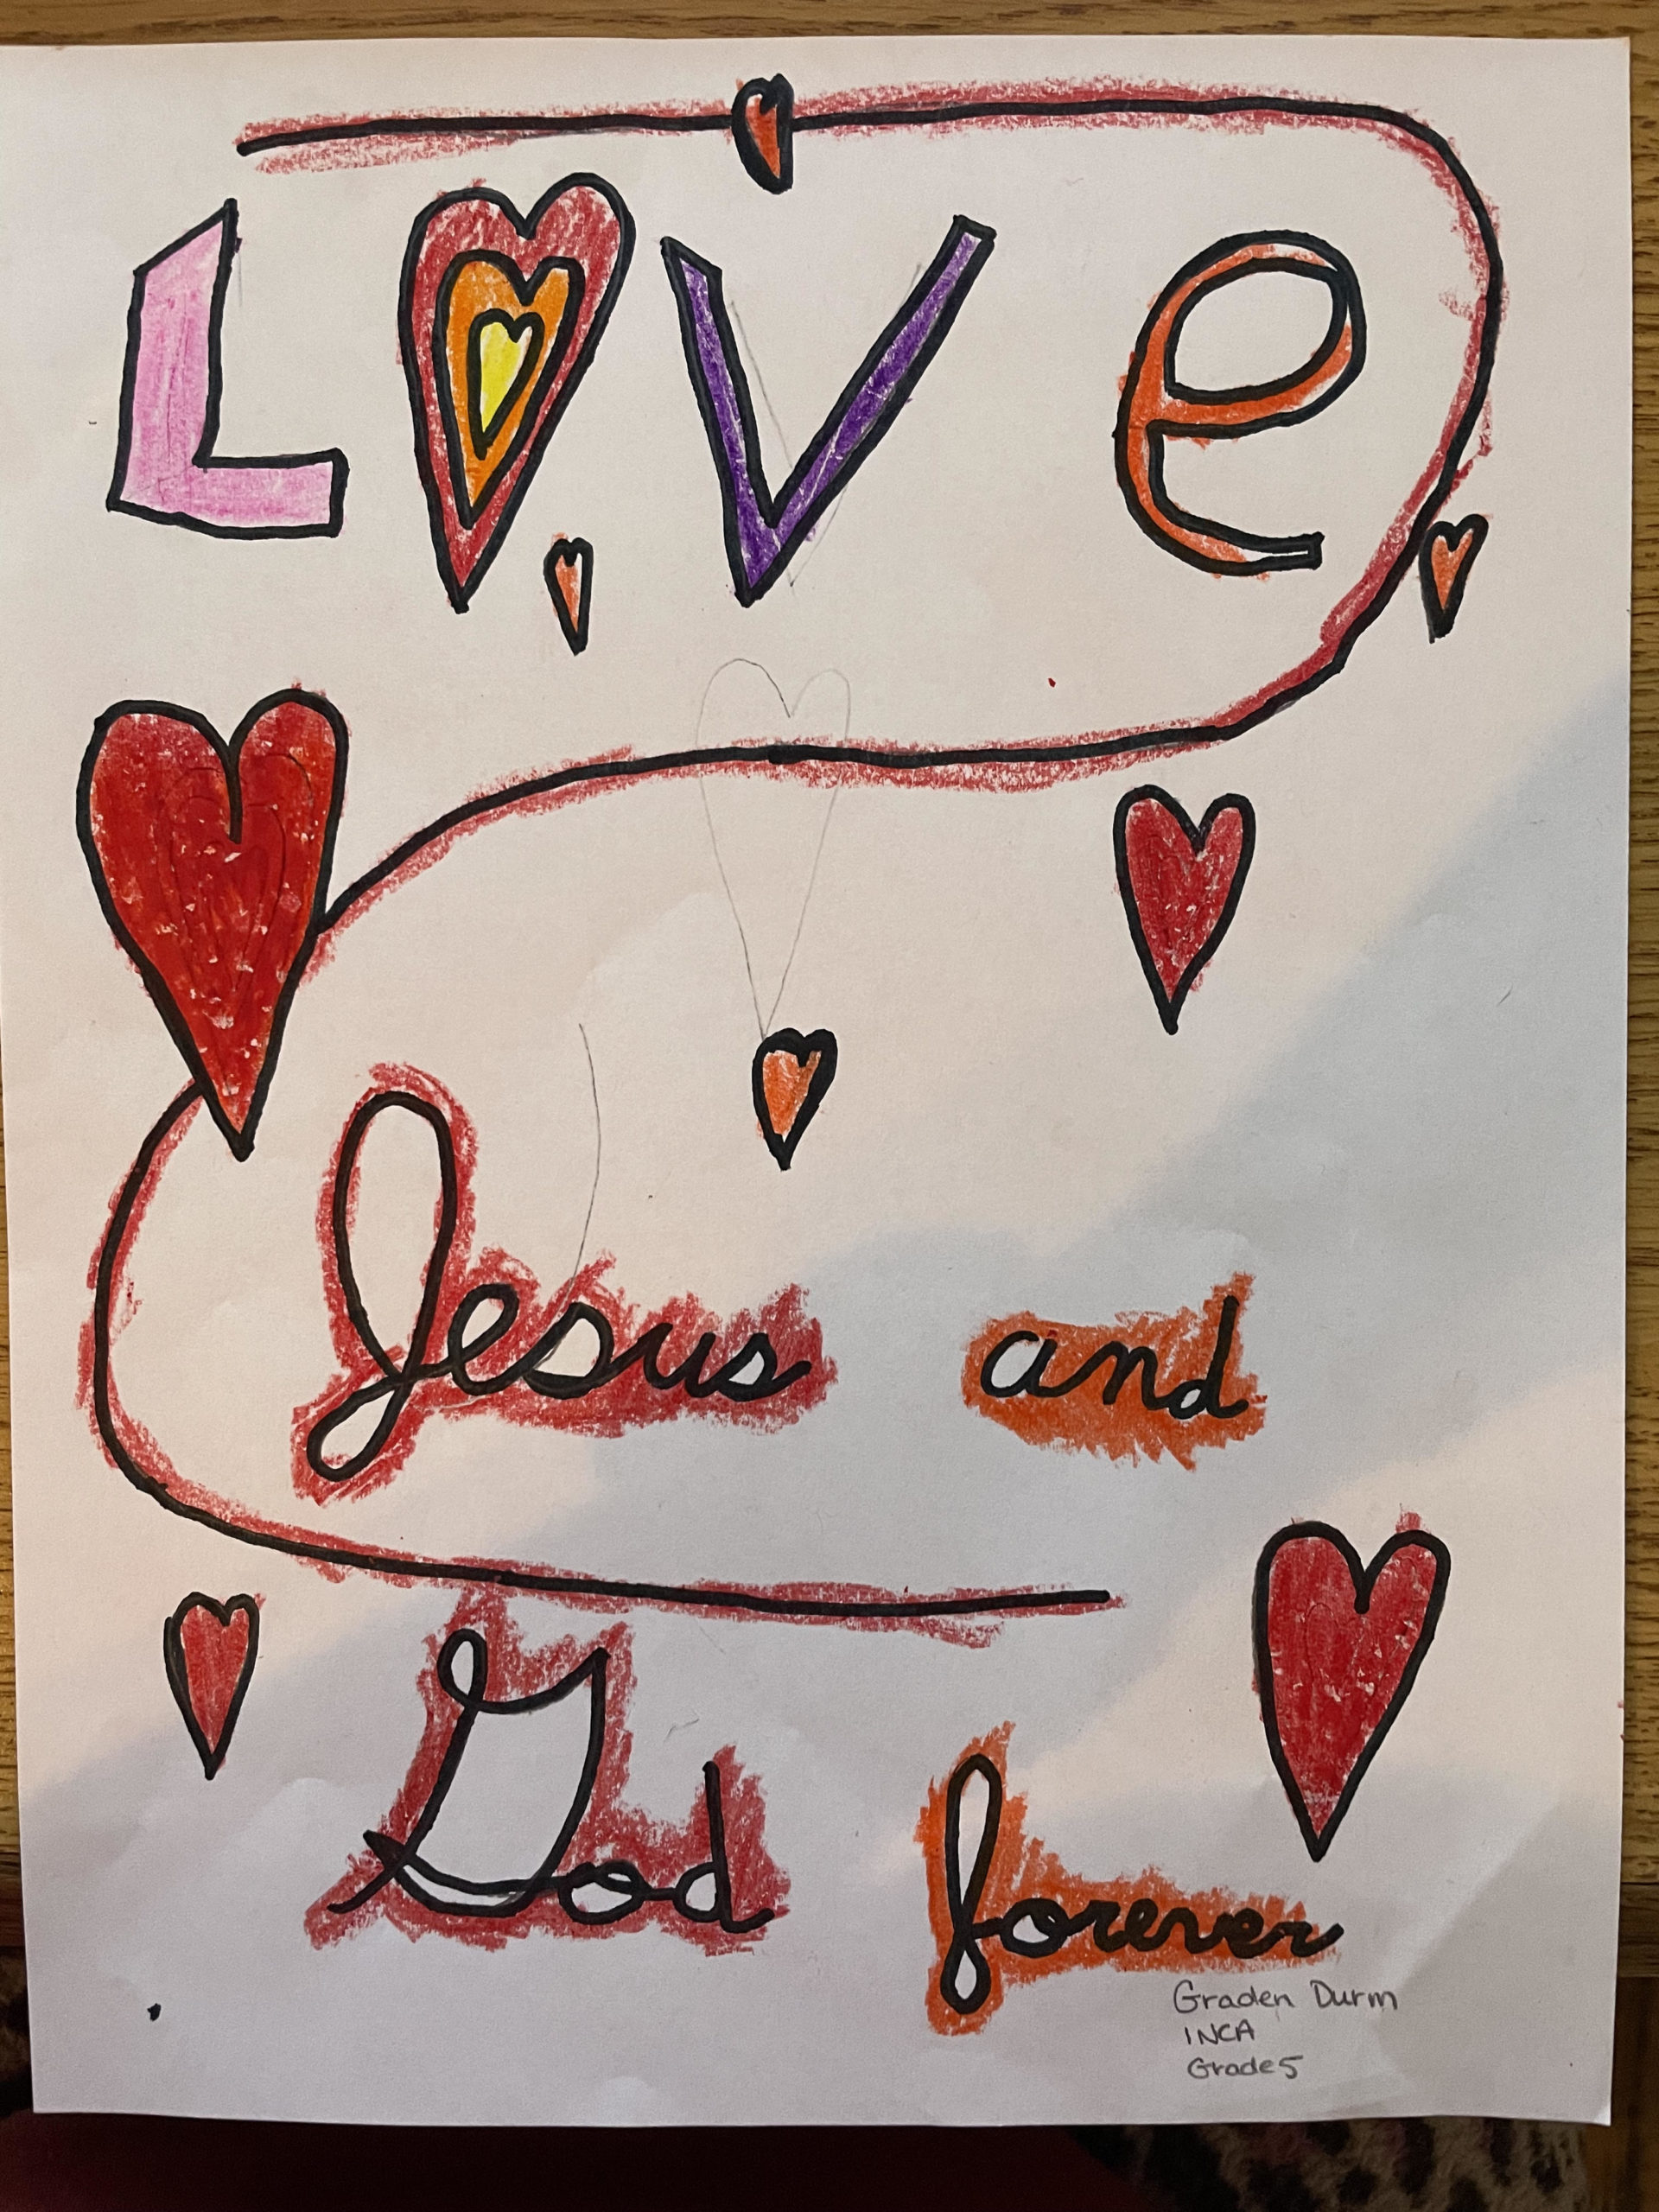 LOVe
Jesus and
God forever
Graden Durm
INCA
Grade 5